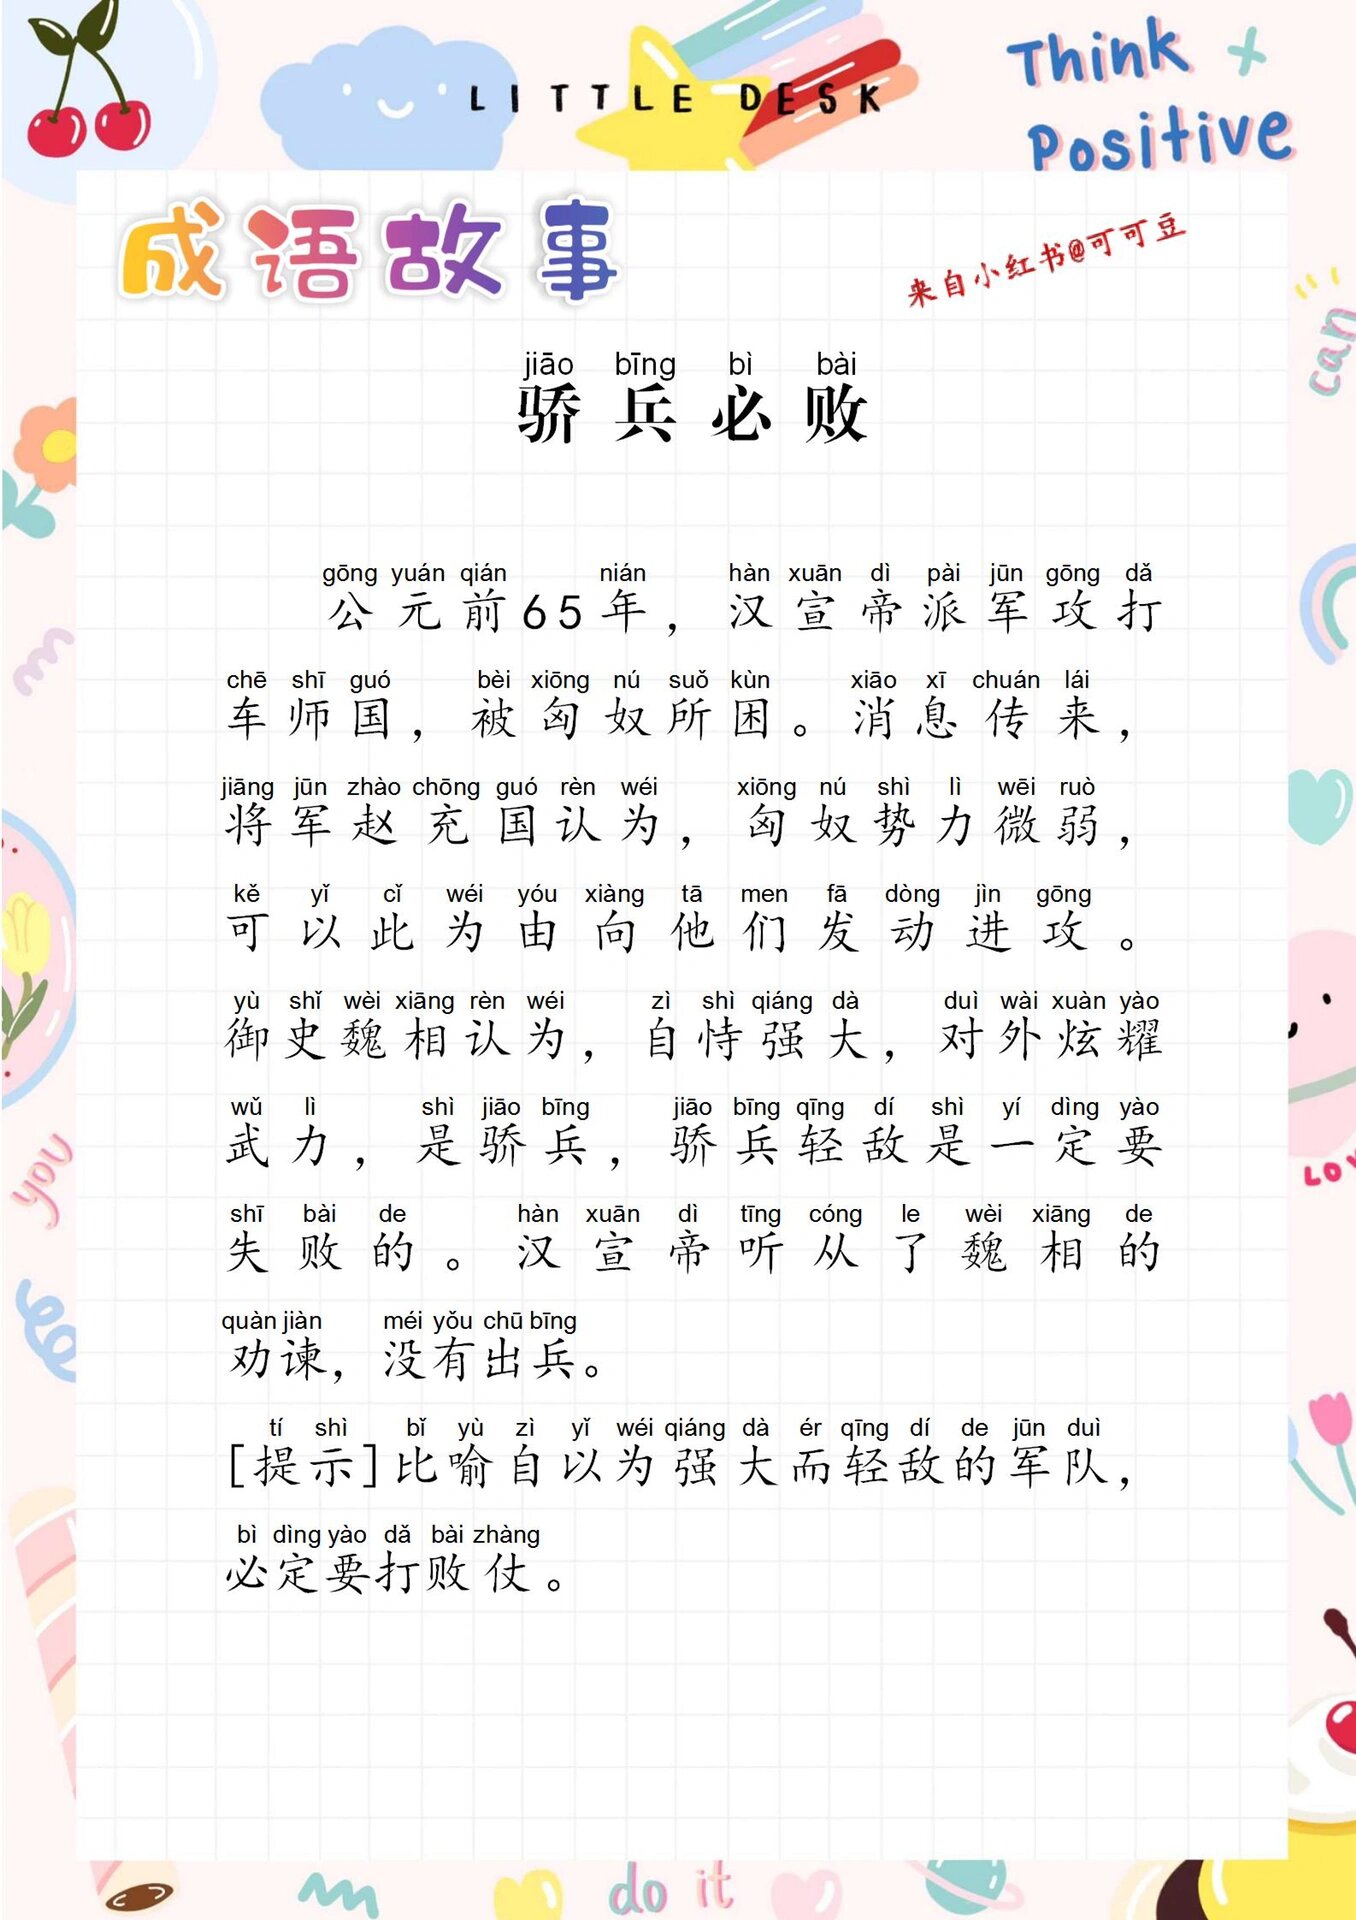 LITTLE DESK
Think +
Positive
成语故事
来自小红书@可可豆
can
jiāo bīng bì bài
骄兵必败
gōng yuán qián nián hàn xuān dì pài jūn gōng dǎ
公元前65年，汉宣帝派军攻打
chē shī guó bèi xiōng nú suǒ kùn xiāo xī chuán lái
车师国，被匈奴所困。消息传来，
jiāng jūn zhào chōng guó rèn wéi xiōng nú shì lì wēi ruò
将军赵充国认为，匈奴势力微弱，
kě yǐ cǐ wéi yóu xiàng tā men fā dòng jìn gōng
可以此为由向他们发动进攻。
yù shǐ wèi xiāng rèn wéi zì shì qiáng dà duì wài xuàn yào
御史魏相认为，自恃强大，对外炫耀
wǔ lì shì jiāo bīng jiāo bīng qīng dí shì yí dìng yào
武力，是骄兵，骄兵轻敌是一定要
shī bài de hàn xuān dì tīng cóng le wèi xiāng de
失败的。汉宣帝听从了魏相的
quàn jiàn méi yǒu chū bīng
劝谏，没有出兵。
tí shì bǐ yù zì yǐ wéi qiáng dà ér qīng dí de jūn duì
[提示]比喻自以为强大而轻敌的军队，
bì dìng yào dǎ bài zhàng
必定要打败仗。
you
do it